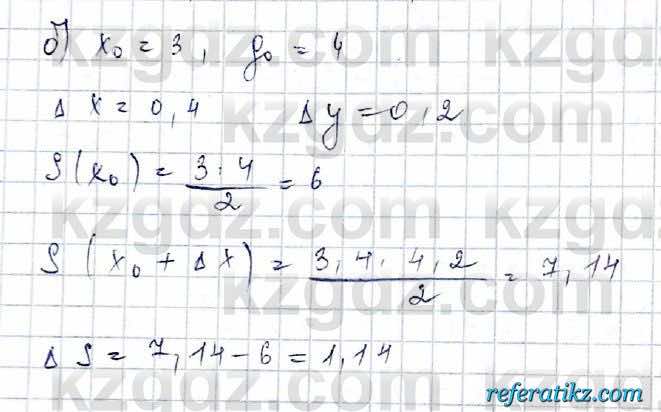 б) x₀ = 3, y₀ = 4
Δ x = 0,4 Δ y = 0,2
S(x₀) = 3·4/2 = 6
S(x₀ + Δx) = 3,4·4,2/2 = 7,14
Δ S = 7,14 - 6 = 1,14
kzgdz.com kzgdz.com
referatikz.com